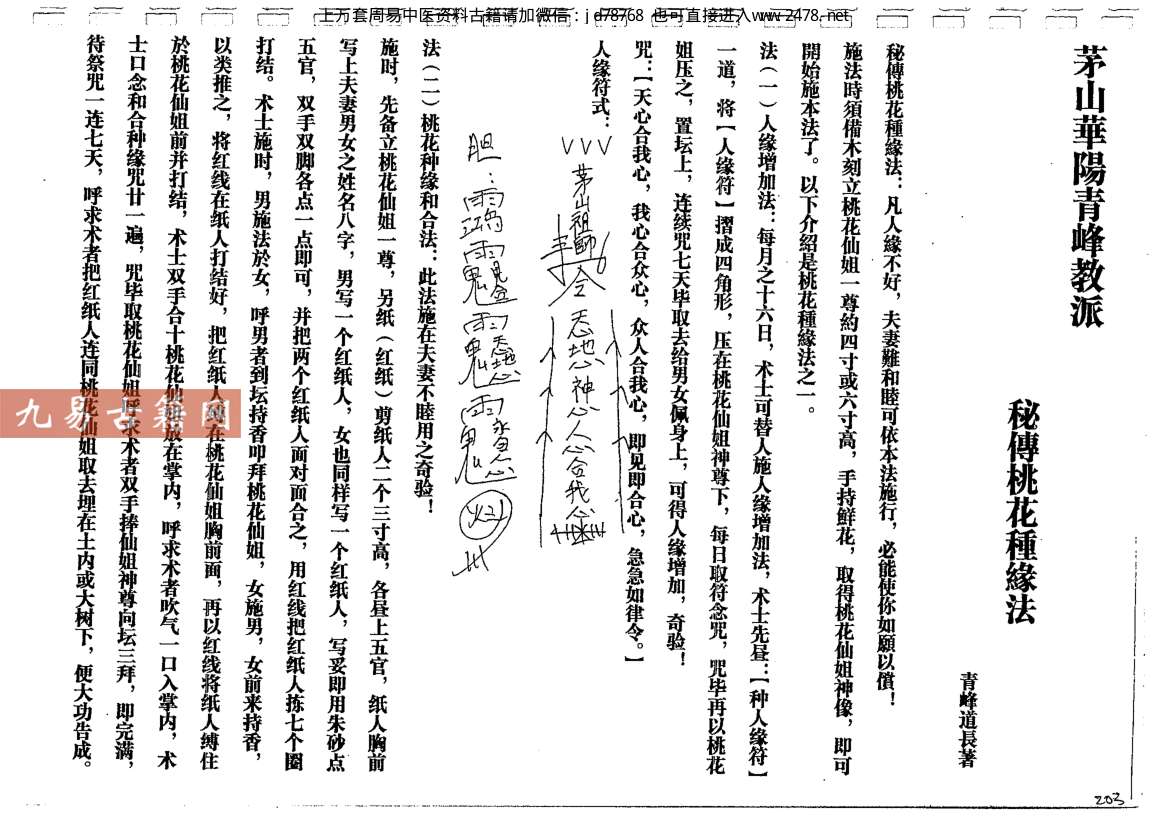 上万套周易中医资料古籍请加微信：jd78768 也可直接进入www.2478.net
茅山華陽青峰教派
秘傳桃花種緣法
青峰道長著
秘傳桃花種緣法：凡人緣不好，夫妻難和睦可依本法施行，必能使你如願以償！
施法時須備木刻立桃花仙姐一尊約四寸或六寸高，手持鮮花，取得桃花仙姐神像，即可
開始施本法了。以下介紹是桃花種緣法之一。
法（一）人缘增加法：每月之十六日，术士可替人施人缘增加法，术士先昼：【种人缘符】
一道，将【人缘符】摺成四角形，压在桃花仙姐神尊下，每日取符念咒，咒毕再以桃花
姐压之，置坛上，连续咒七天毕取去给男女佩身上，可得人缘增加，奇验！
咒：【天心合我心，我心合众心，众人合我心，即见即合心，急急如律令。】
人缘符式：
茅山祖師 令 神心人心合我心
胆：
法（二）桃花种缘和合法：此法施在夫妻不睦用之奇验！
施时，先备立桃花仙姐一尊，另纸（红纸）剪纸人二个三寸高，各昼上五官，纸人胸前
写上夫妻男女之姓名八字，男写一个红纸人，女也同样写一个红纸人，写妥即用朱砂点
五官，双手双脚各点一点即可，并把两个红纸人面对面合之，用红线把红纸人拣七个圈
打结。术士施时，男施法於女，呼男者到坛持香叩拜桃花仙姐，女施男，女前来持香，
以类推之，将红线在纸人打结好，把红纸人 在桃花仙姐胸前面，再以红线将纸人缚住
於桃花仙姐前并打结，术士双手合十桃花仙姐放在掌内，呼求术者吹气一口入掌内，术
士口念和合种缘咒廿一遍，咒毕取桃花仙姐呼求术者双手捧仙姐神尊向坛三拜，即完满，
待祭咒一连七天，呼求术者把红纸人连同桃花仙姐取去埋在土内或大树下，便大功告成。
九易古籍网
203